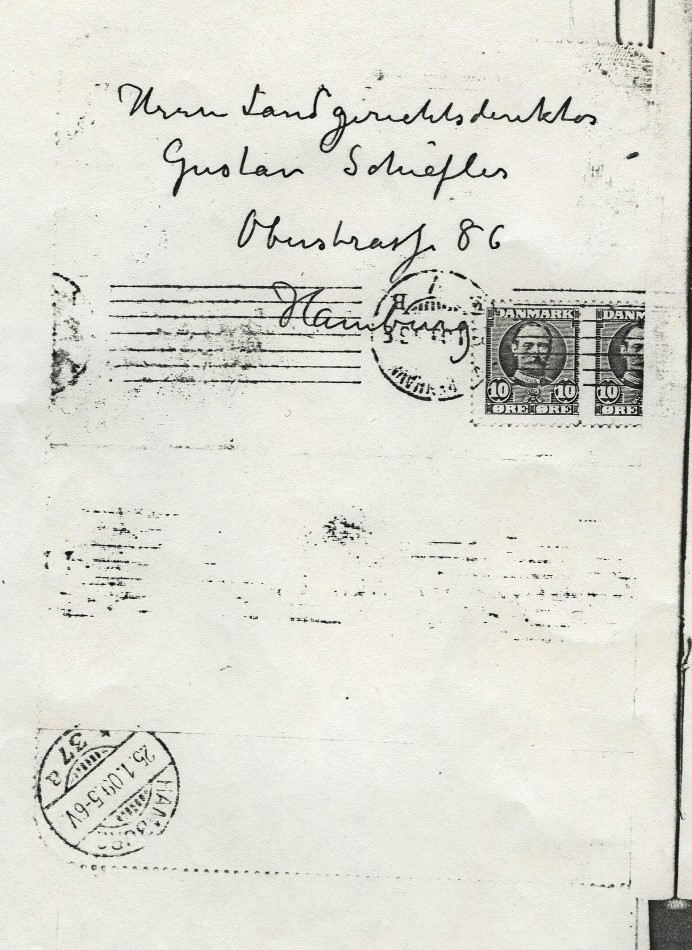 Herrn Landgerichtsdirektor
Gustav Schiefler
Oberstrasse 86
Hamburg
DANMARK
10 10
ØRE ØRE
DANM
10
ØRE
37a
25.1.09.5-6V
HAMBURG